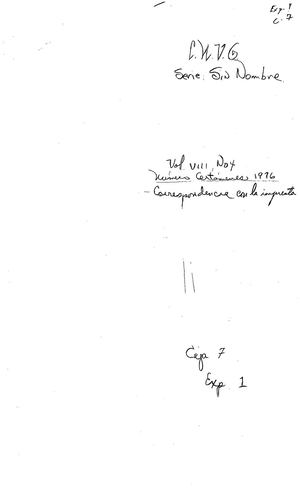 Exp. 1
C. 7
Serie: Sin Nombre
Vol VIII, No 4
Número Certámenes 1976
- Correspondencia con la imprenta
Caja 7
Exp 1